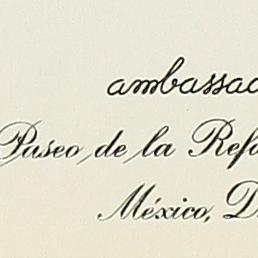 ambassad
Paseo de la Refo
México, D.